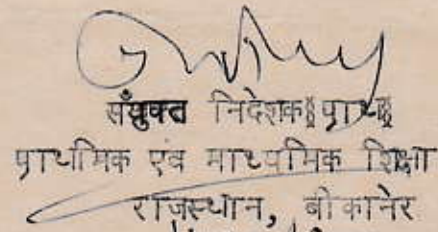 संयुक्त निदेशक§प्राथ§
प्राथमिक एवं माध्यमिक शिक्षा
राजस्थान, बीकानेर